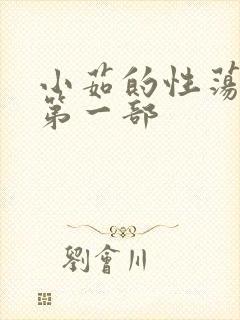 小茹的性荡
第一部
劉會川